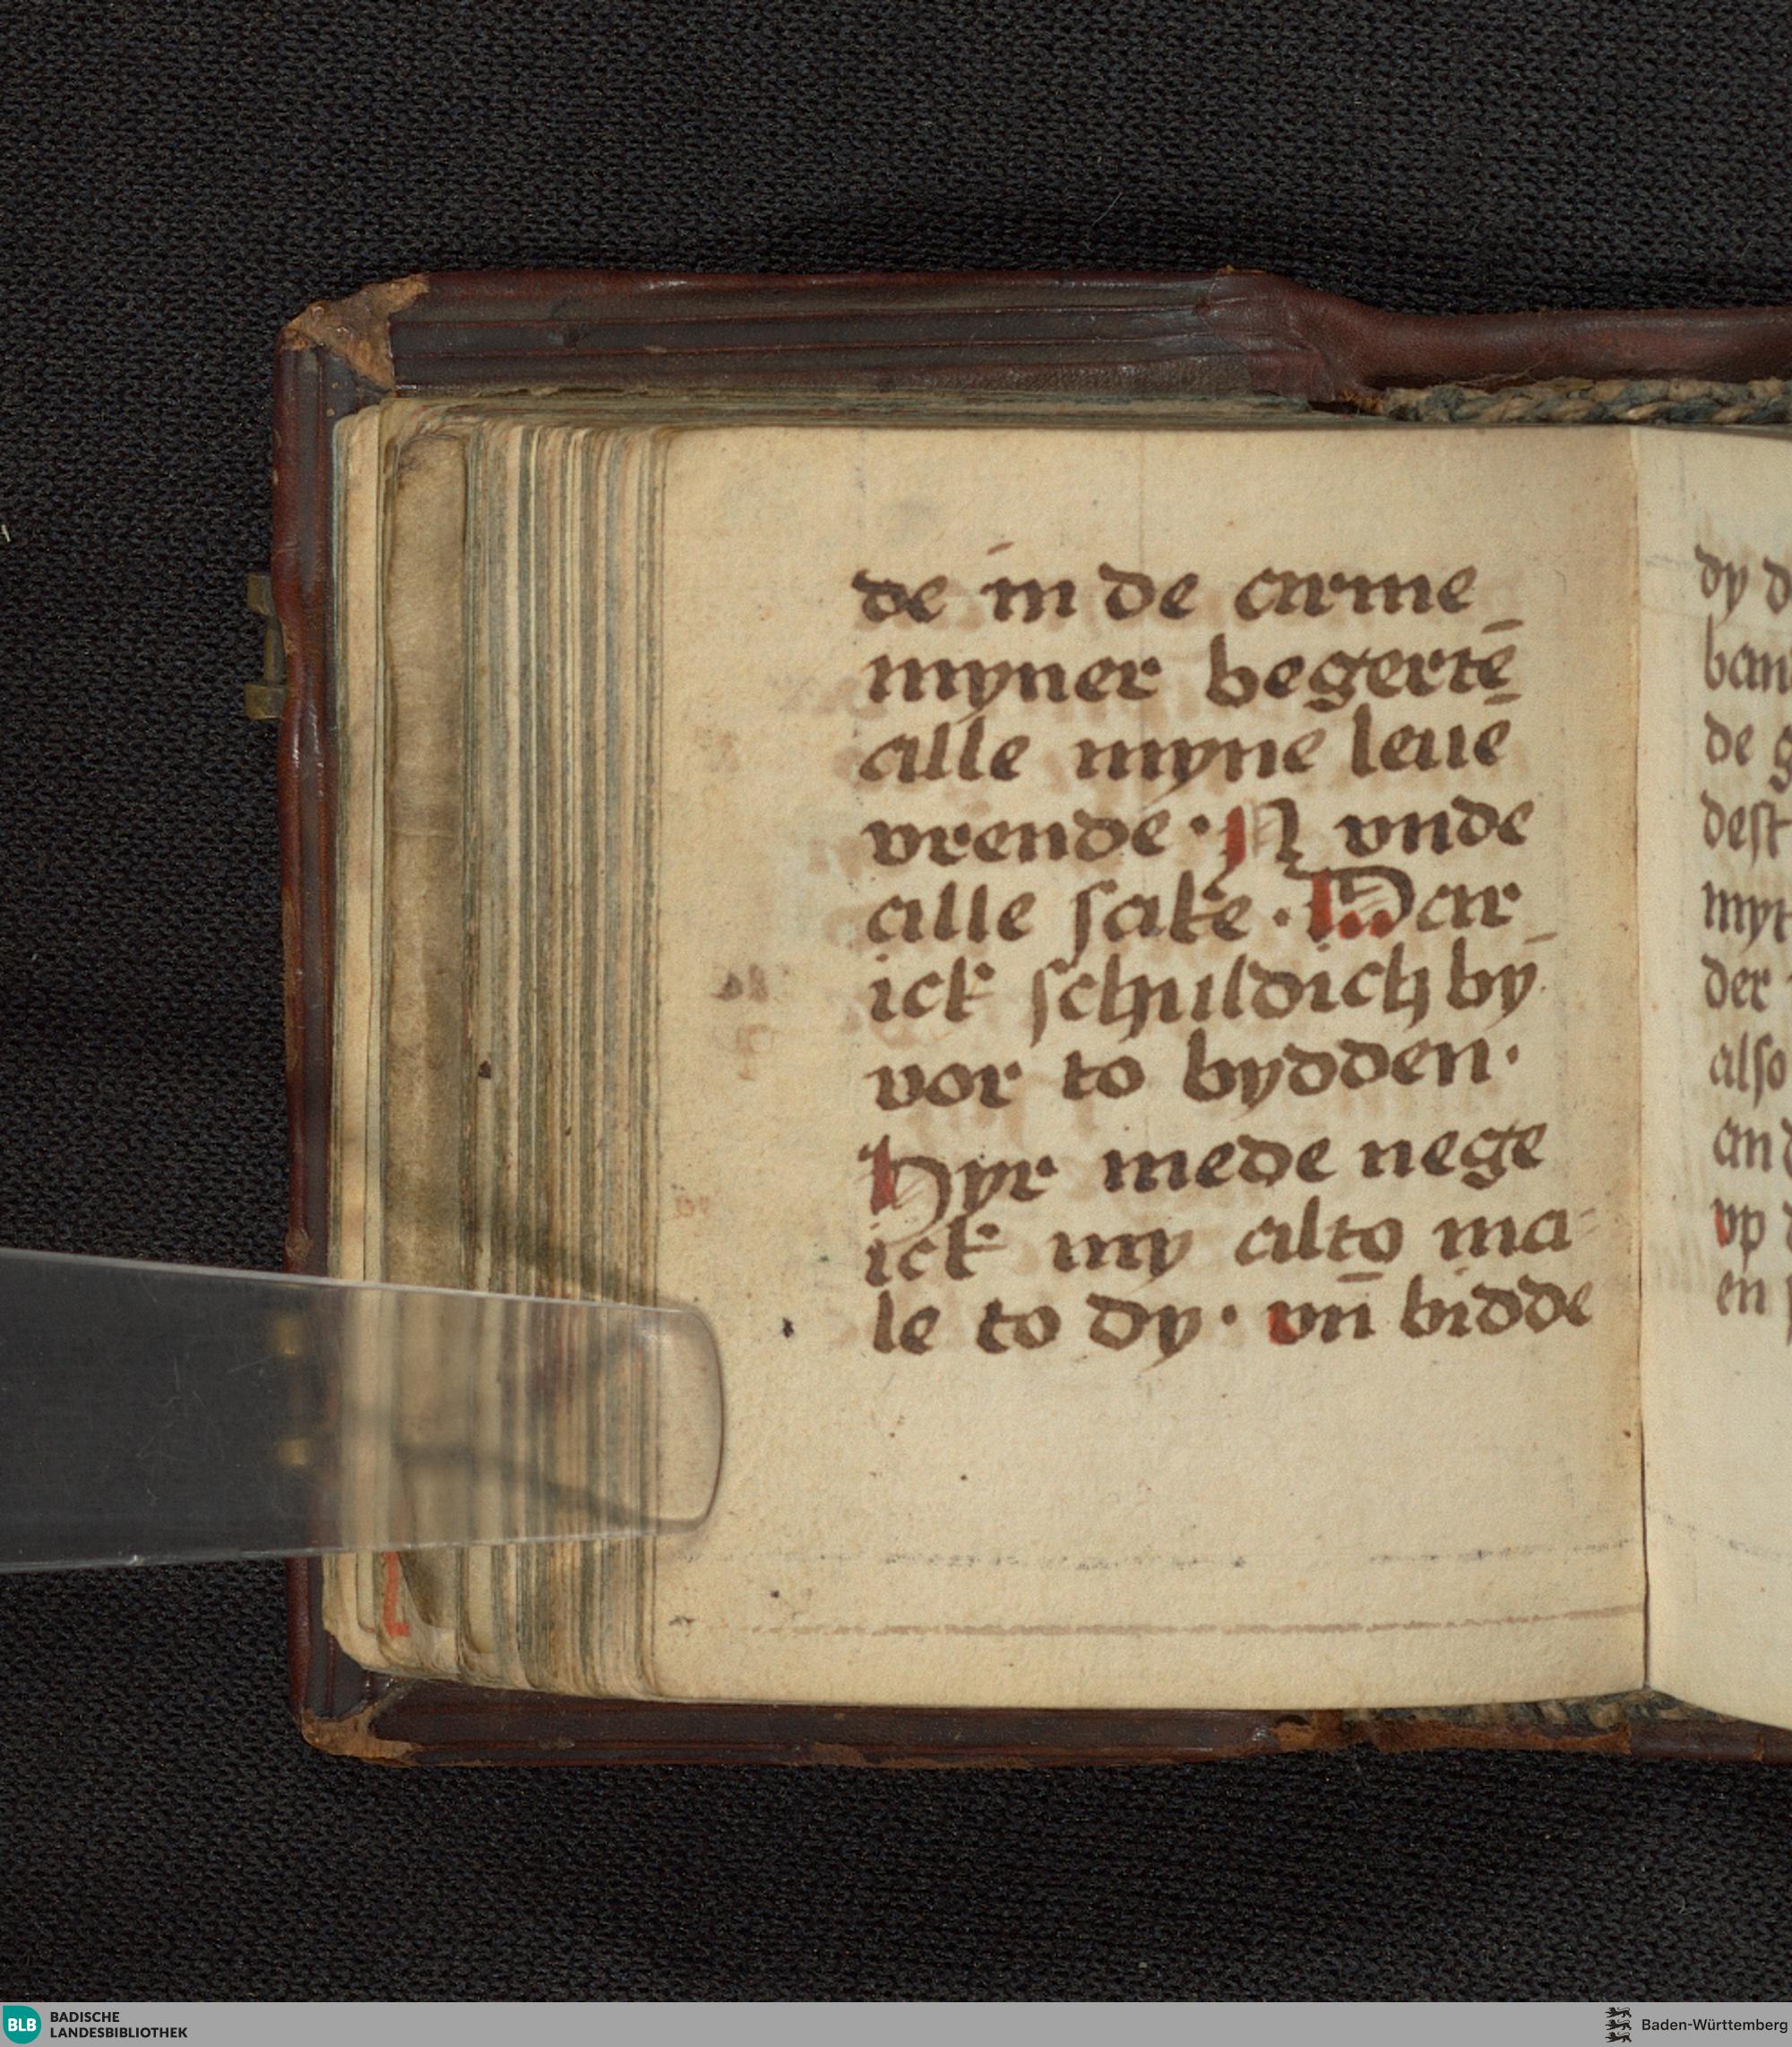 de in de arme
myner begertē
alle myne leuē
vrende · N vnde
alle sake · War
ick schuldich bȳ
vor to bydden ·
Hyr mede nege
ick my alto ma-
le to dy · vn̄ bidde
dy d
ban
de g
dest
myt
der
also
an d
vp d
en
BLB BADISCHE
LANDESBIBLIOTHEK
Baden-Württemberg